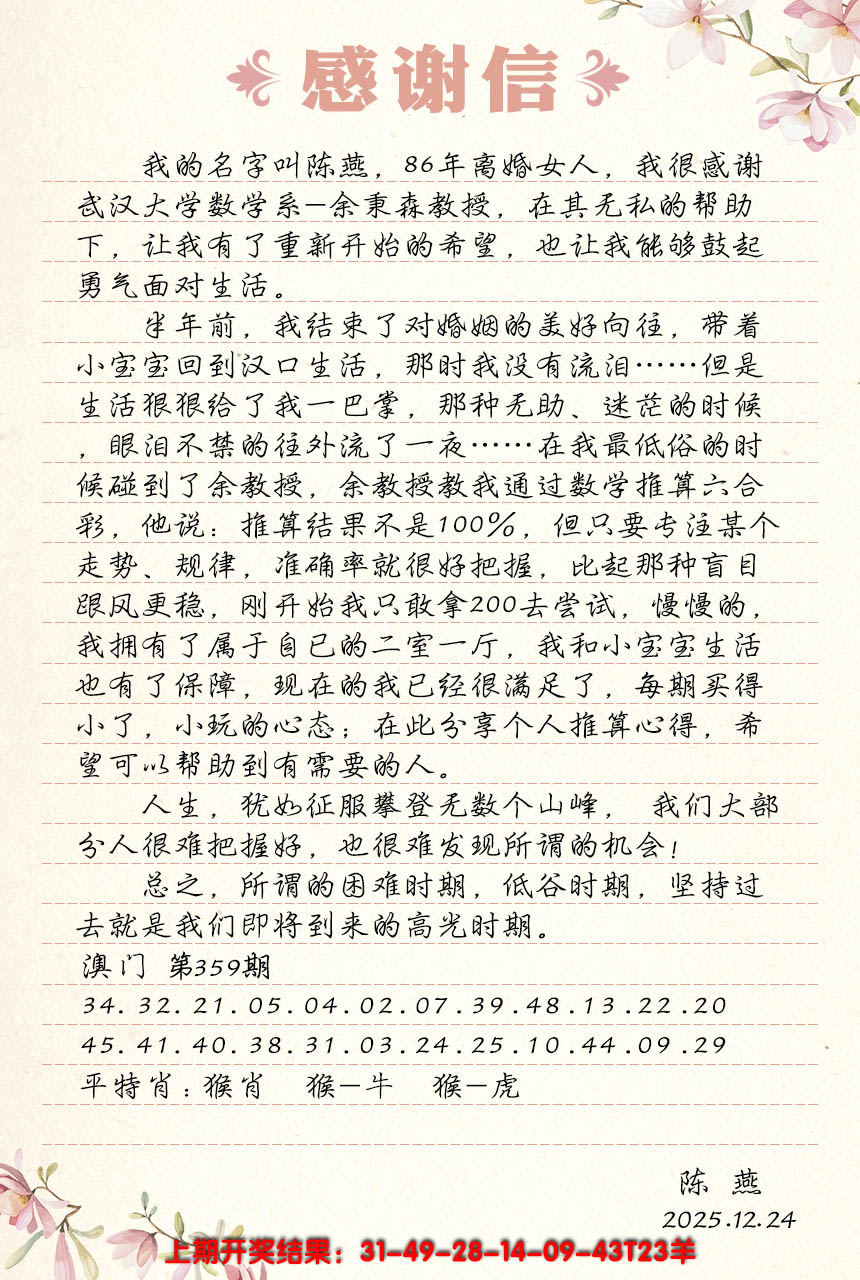 感谢信
我的名字叫陈燕，86年离婚女人，我很感谢
武汉大学数学系-余秉森教授，在其无私的帮助
下，让我有了重新开始的希望，也让我能够鼓起
勇气面对生活。
半年前，我结束了对婚姻的美好向往，带着
小宝宝回到汉口生活，那时我没有流泪……但是
生活狠狠给了我一巴掌，那种无助、迷茫的时候
，眼泪不禁的往外流了一夜……在我最低俗的时
候碰到了余教授，余教授教我通过数学推算六合
彩，他说：推算结果不是100%，但只要专注某个
走势、规律，准确率就很好把握，比起那种盲目
跟风更稳，刚开始我只敢拿200去尝试，慢慢的，
我拥有了属于自已的二室一厅，我和小宝宝生活
也有了保障，现在的我已经很满足了，每期买得
小了，小玩的心态；在此分享个人推算心得，希
望可以帮助到有需要的人。
人生，犹如征服攀登无数个山峰， 我们大部
分人很难把握好，也很难发现所谓的机会！
总之，所谓的困难时期，低谷时期，坚持过
去就是我们即将到来的高光时期。
澳门 第359期
34.32.21.05.04.02.07.39.48.13.22.20
45.41.40.38.31.03.24.25.10.44.09.29
平特肖：猴肖 猴-牛 猴-虎
陈 燕
2025.12.24
上期开奖结果：31-49-28-14-09-43T23羊